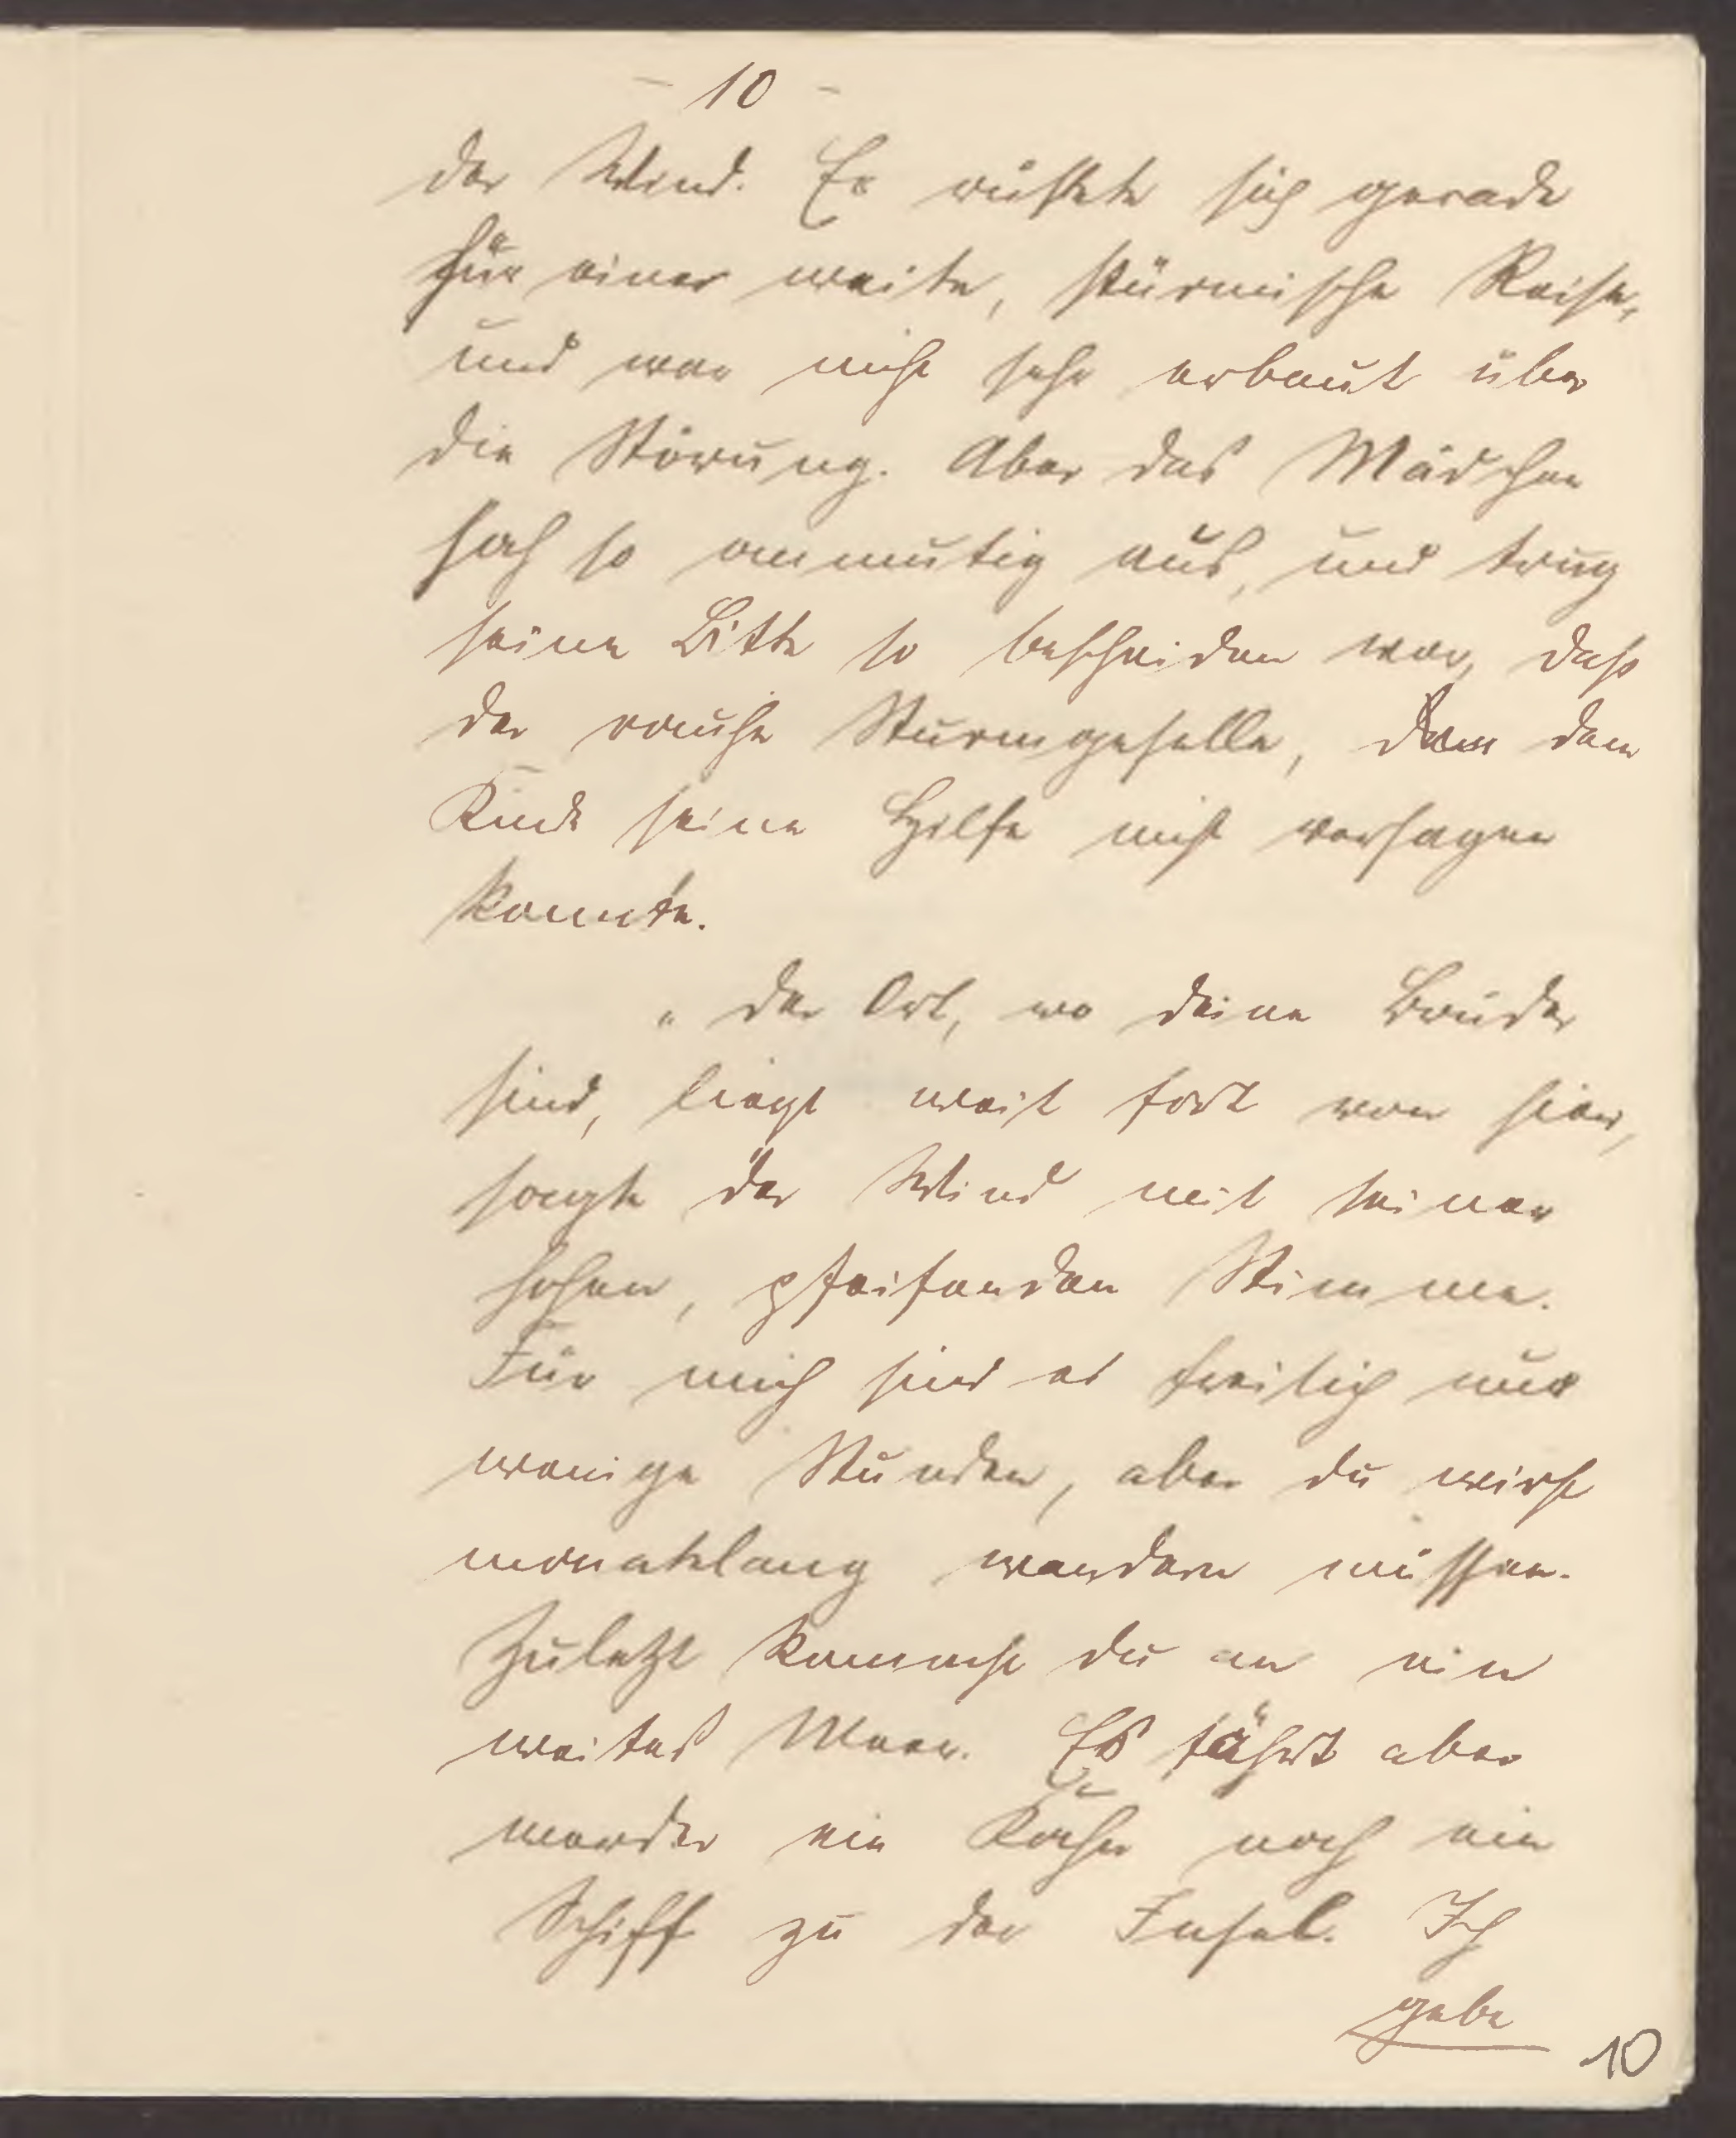 - 10 -
der Wind. Er rüstete sich gerade
für einer weite, stürmische Reise,
und war nicht sehr erbaut über
die Störung. Aber das Mädchen
sah so anmutig aus, und trug
seine Bitte so bescheiden vor, dass
der rauhe Sturmgeselle, dem dem
Kinde seine Hilfe nicht versagen
konnte.
„Der Ort, wo deine Brüder
sind, liegt weit fort von hier,"
sagte der Wind mit seiner
hohen, pfeifenden Stimme.
Für mich sind es freilich nur
wenige Stunden, aber du wirst
monatelang wandern müssen.
Zuletzt kommst du an ein
weites Meer. Es fährt aber
weder ein Kahn noch ein
Schiff zu der Insel. Ich
gebe
10